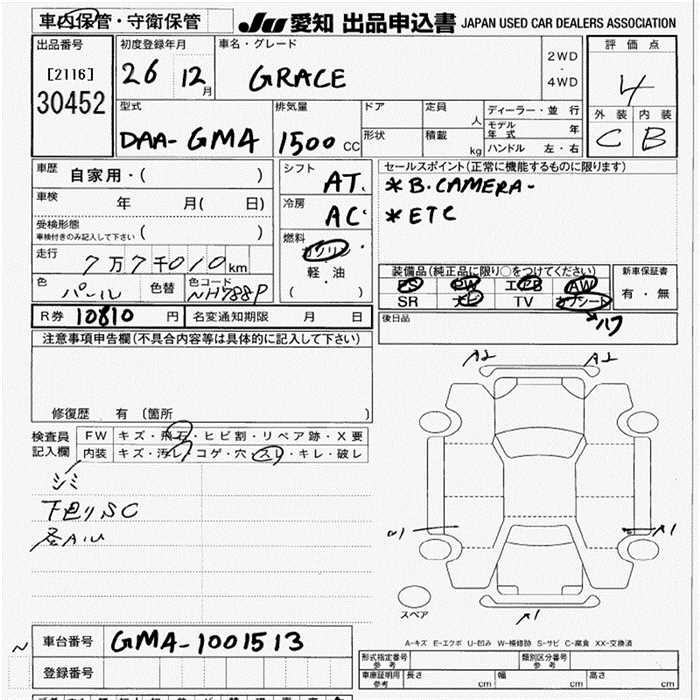 車内保管・守衛保管 JU 愛知 出品申込書 JAPAN USED CAR DEALERS ASSOCIATION
出品番号 初度登録年月 車名・グレード 2WD ・ 4WD 評価点
[2116] 26 12月 GRACE 4
30452 型式 排気量 ドア 定員 人 ディーラー・並行 外装 内装
モデル年式 年
DAA-GMA 1500 CC 形状 積載 kg ハンドル 左・右 C B
車歴 自家用・( ) シフト AT セールスポイント(正常に機能するものに限ります)
車検 年 月( 日) 冷房 AC *B.CAMERA-
受検形態 ( ) *ETC
車検付きのみ記入して下さい
燃料 ガソリン
走行 7万7千010km 軽・油 装備品(純正品に限り○をつけてください) 新車保証書
色 パール 色替 色コード NH788P ( ) PS PW エアB AW 有・無
SR ナビ TV カワシート
ハフ
R券 10810 円 名変通知期限 月 日 後日品
注意事項申告欄(不具合内容等は具体的に記入して下さい)
A2 A2
修復歴 有 (箇所 )
検査員記入欄 FW キズ・飛石・ヒビ割・リペア跡・X要
内装 キズ・汚レ・コゲ・穴・スレ・キレ・破レ
シミ
下廻りSC
A1
スペア
A1
A-キズ E-エクボ U-凹み W-補修跡 S-サビ C-腐食 XX-交換済
車台番号 GMA-1001513
形式指定番号 参考 類別区分番号 参考
登録番号 車庫証明用 参考 長さ cm 幅 cm 高さ cm